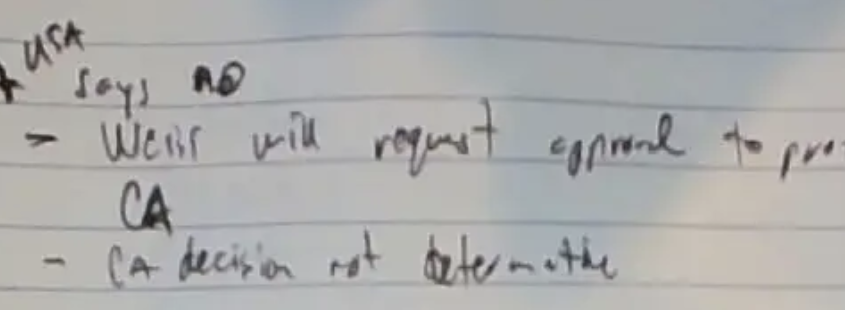 USA
says no
- Weiss will request approval to pro
CA
- CA decision not determative